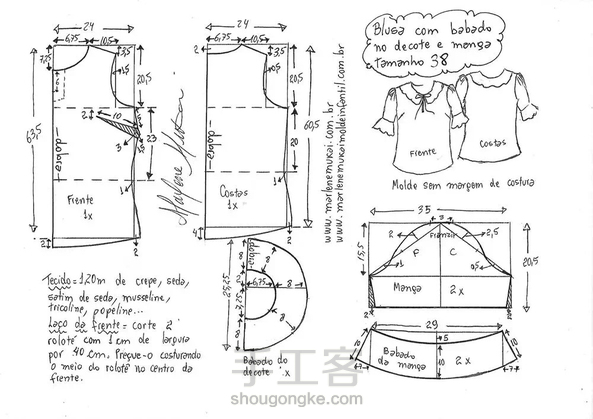 Blusa com babado
no decote e manga
tamanho 38
24
6,75
10,5
7,25
3,5
1,5
20,5
63,5
dobra
2
10
3
23
1
Frente
1x
2
2
Marlene Mukai
24
2
6,75
10,5
3,5
0,5
20,5
60,5
dobra
20
1
Costas
1x
4
2
www.marlenemukai.com.br
www.marlenemukaimoldeinfantil.com.br
Frente
Costas
Molde sem margem de costura
35
3
2
Franzir
2,5
15,5
F
C
20,5
1
0,5
Manga
2x
2
2
29
5
10
10
10
Babado
da manga
2x
7
7
25,25
dobra
8
8
6,75
8
2,25
8
8
Babado do
decote
x
Tecido = 1,20m de crepe, seda,
satim de seda, musseline,
tricoline, popeline...
Laço da frente = corte 2
rolotê com 1 cm de largura
por 40 cm. Pregue-o costurando
o meio do rolotê no centro da
frente.
手工客
shougongke.com